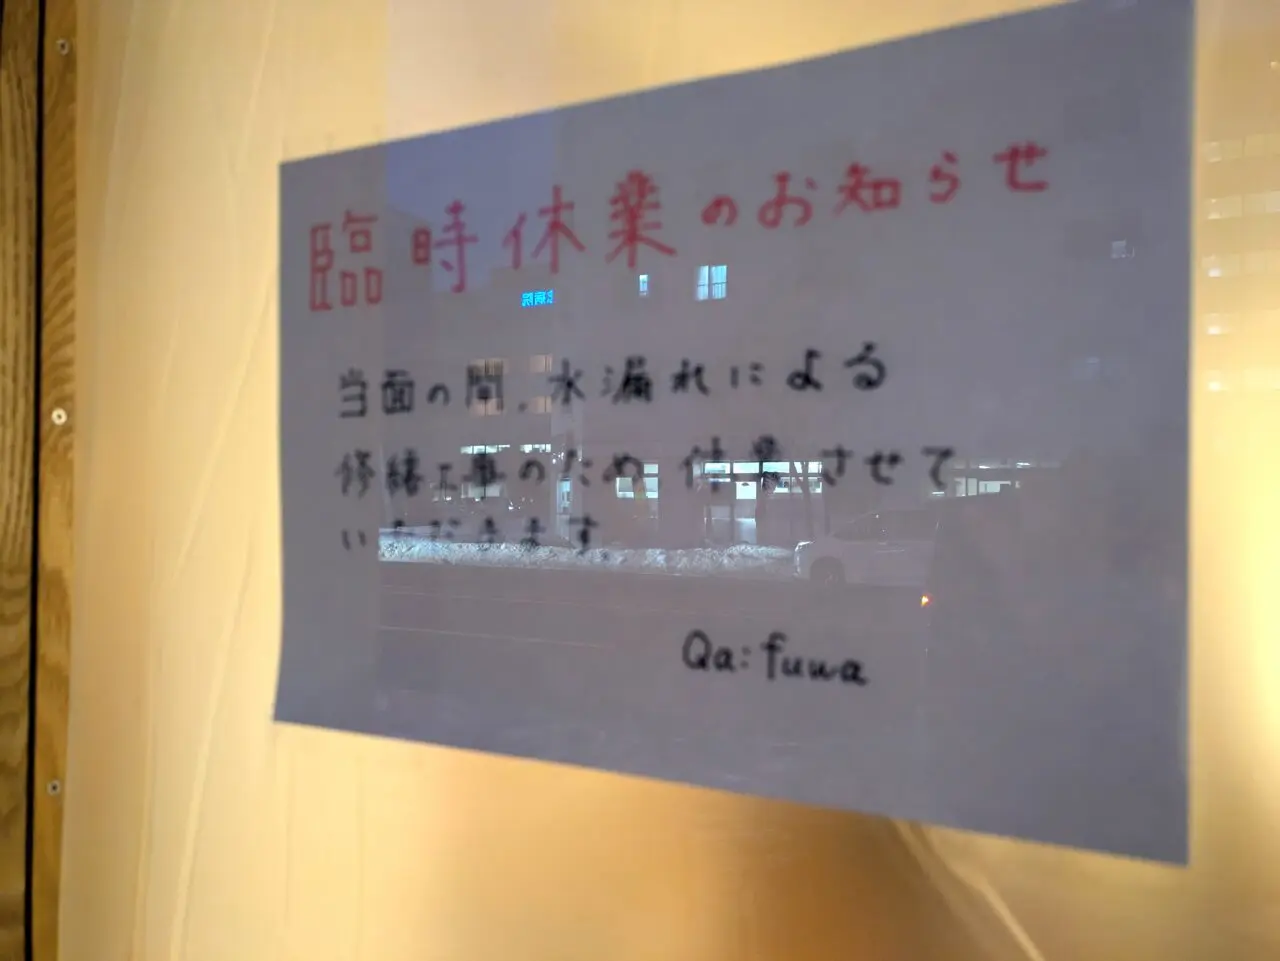 臨時休業のお知らせ
当面の間、水漏れによる
修繕工事のため 休業させて
いただきます。
Qa:fuwa
病院